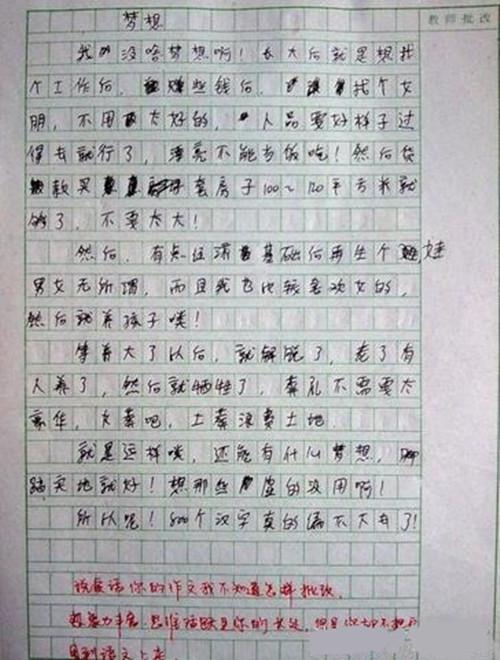 教师批改
梦想
我没啥梦想啊！长大后就是想找
个工作后，赚些钱后，找个女
朋，不用太好的，人品要好样子过
得去就行了，漂亮不能当饭吃！然后贷
款买套房子100~120平方米就
够了，不要太大！
然后，有点经济基础后再生个娃
男女无所谓，而且我也比较喜欢女的，
然后就养孩子喽！
等养大了以后，就解脱了，老了有
人养了，然后就牺牲了，葬礼不需要太
豪华，火葬吧，土葬浪费土地.
就是这样喽，还能有什么梦想，脚
踏实地就好！想那些虚的没用啊！
所以呢！800个汉字真的编不下去了！
说实话你的作文我不知道怎样批改，
想象力丰富，思维活跃是你的长处，但是